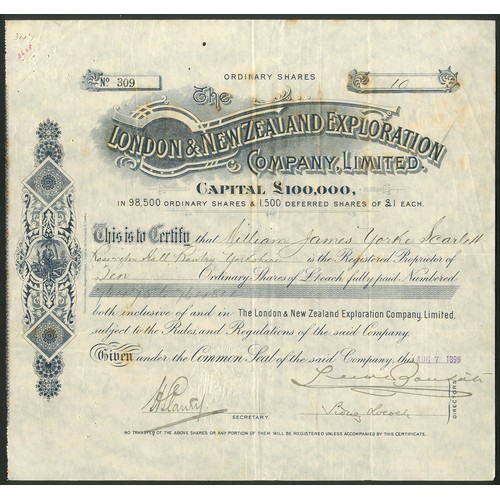 ORDINARY SHARES
No 309
10
The
LONDON & NEW ZEALAND EXPLORATION
COMPANY, LIMITED.
CAPITAL £100,000,
IN 98,500 ORDINARY SHARES & 1,500 DEFERRED SHARES OF £1 EACH.
This is to Certify that William James Yorke Scarlett
Hall Bawtry Yorkshire is the Registered Proprietor of
Ten Ordinary Shares of £1 each, fully paid Numbered
both inclusive of and in The London & New Zealand Exploration Company, Limited,
subject to the Rules and Regulations of the said Company.
Given under the Common Seal of the said Company, this AUG 1896
SECRETARY.
DIRECTORS
NO TRANSFER OF THE ABOVE SHARES OR ANY PORTION OF THEM WILL BE REGISTERED UNLESS ACCOMPANIED BY THIS CERTIFICATE.